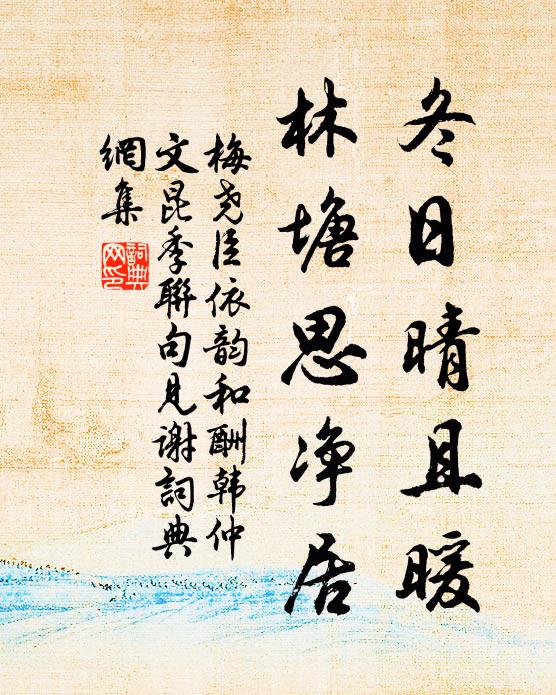 冬日晴且暖
林塘思净居
梅尧臣依韵和酬韩仲
文昆季聯句見谢詞典
網集
詞典
网印